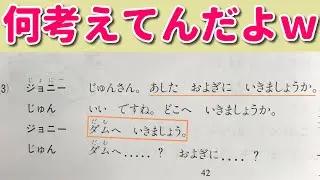 何考えてんだよｗ
3) ジョニー じゅんさん。あした およぎに いきましょうか。
じゅん いい ですね。どこへ いきましょうか。
ジョニー ダムへ いきましょう。
じゅん ダムへ.....？ およぎに....？
42